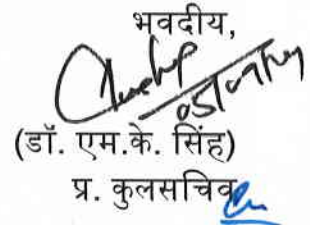 भवदीय,
(डॉ. एम.के. सिंह)
प्र. कुलसचिव